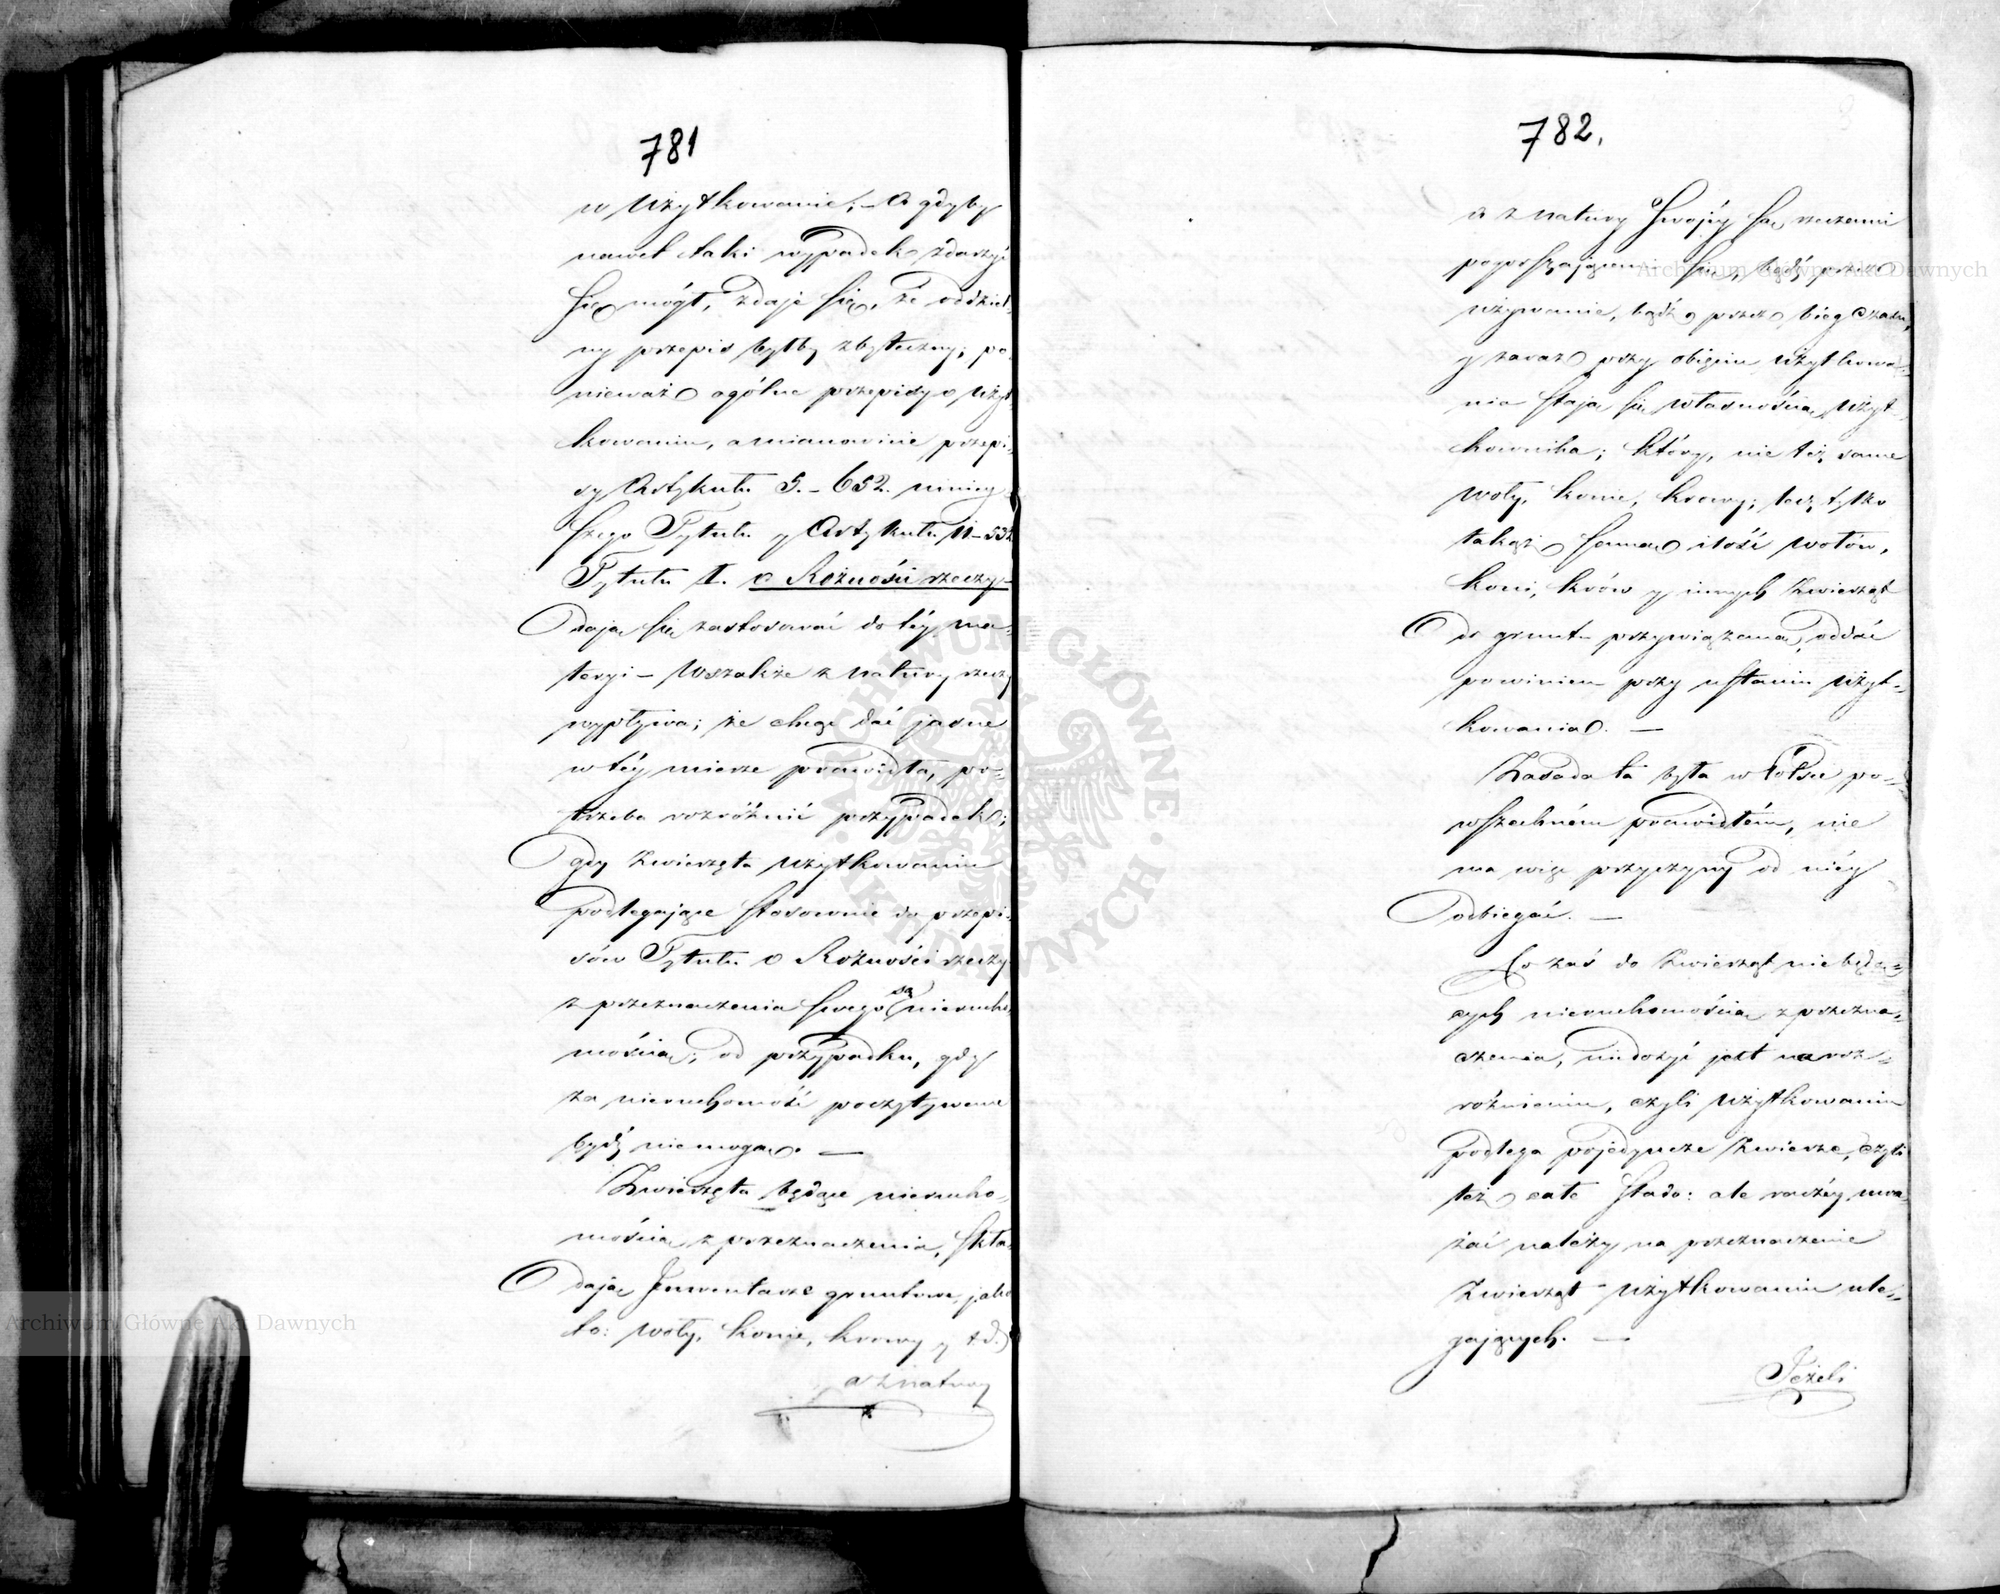 781
w Użytkowanie; – A gdyby
nawet taki wypadek zdarzyć
się mógł, zdaje się, że oddziel-
ny przepis byłby zbyteczny; po-
nieważ ogólne przepisy o Użyt-
kowaniu, a mianowicie, przepi-
sy Artykułu 5. – 652. niniey-
szego Tytułu y Artykułu 11 – 532
Tytułu I. o Rożności rzeczy –
dają się zastosować do téy ma-
teryi – Wszakże z natury rzeczy
wypływa; że chcąc dać jasne
w téy mierze prawidła, po-
trzeba rozróżnić przypadek;
gdy Zwierzęta Użytkowaniu
podlegające stosownie do przepi-
sów Tytułu o Rożności rzeczy
z przeznaczenia swego są nierucho-
mością; od przypadku, gdy
za nieruchomość poczytywane
bydź niemogą. –
Zwierzęta będące nierucho-
mością z przeznaczenia, skła-
dają Inwentarze gruntowe, jako
to: Woły, konie, krowy y t.d.)
a z natury
782.
a z natury swojéy są rzeczami
pogorszającemi się, bądź przez
używanie, bądź przez bieg czasu,
y zaraz przy objęciu Użytkowa-
nia stają się własnością Użyt-
kownika; który, nie téż same
woły, konie, krowy; lecz tylko
takąż samą ilość wołów,
koni, krów y innych Zwierząt
do gruntu przywiązaną, oddać
powinien przy ustaniu Użyt-
kowania. –
Zasada ta była w Polsce po-
wszechném prawidłém, nie
ma więc przyczyny od niéy
odbiegać. –
Co zaś do Zwierząt nie będą-
cych nieruchomością z przezna-
czenia, niedosyć jest na roz-
różnieniu, czyli Użytkowaniu
podlega pojedyncze Zwierze, czyli
też całe stado: ale raczéy uwa-
żać należy na przeznaczenie
Zwierząt Użytkowaniu ule-
gających. –
Jeżeli
Archiwum Główne Akt Dawnych
Archiwum Główne Akt Dawnych
ARCHIWUM GŁÓWNE AKT DAWNYCH